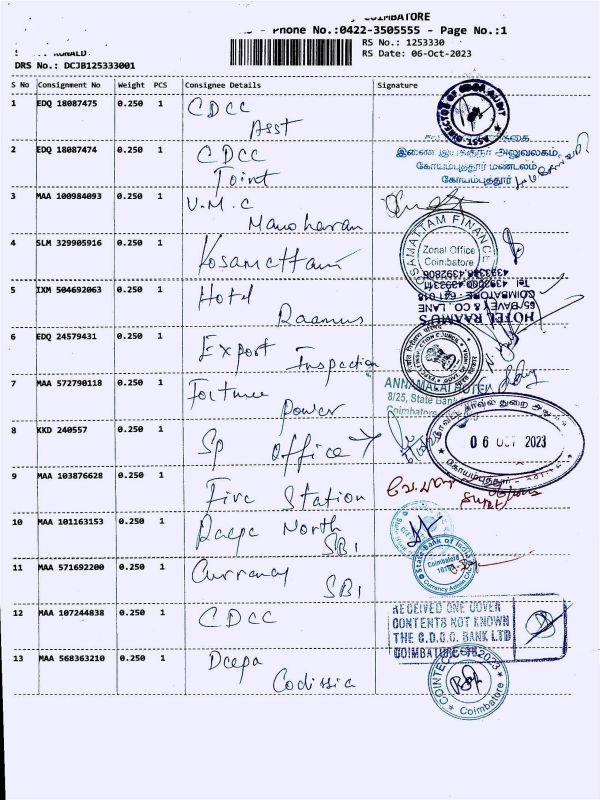 COIMBATORE
- Phone No.:0422-3505555 - Page No.:1
RS No.: 1253330
RONALD
RS Date: 06-Oct-2023
DRS No.: DCJB125333001
S No Consignment No Weight PCS Consignee Details Signature
1 EDQ 18087475 0.250 1 CDCC
Asst
2 EDQ 18087474 0.250 1 CDCC
Joint
இணை இயக்குநர் அலுவலகம்,
கோயம்புத்தூர் மண்டலம்
கோயம்புத்தூர்
3 MAA 100984093 0.250 1 V.M.C
Manoharan
4 SLM 329905916 0.250 1 Kosamattam
KOSAMATTAM FINANCE
Zonal Office
Coimbatore
5 IXM 504692063 0.250 1 Hotel
Raamus
HOTEL RAAMU'S
65/ DAVEY & CO. LANE
COIMBATORE - 641 018
6 EDQ 24579431 0.250 1 Export
Inspection
7 MAA 572790118 0.250 1 Fortune
Power
ANNAMALAI HOTEL
8/25, State Bank
Coimbatore
8 KKD 240557 0.250 1 Sp Office
06 OCT 2023
கோயம்புத்தூர்
9 MAA 103876628 0.250 1
Fire Station
10 MAA 101163153 0.250 1 Racpc North
SBI
11 MAA 571692200 0.250 1 Currency
SBI
State Bank of India
Coimbatore
12 MAA 107244838 0.250 1 CDCC
RECEIVED ONE COVER
CONTENTS NOT KNOWN
THE C.D.C.C. BANK LTD
COIMBATORE
13 MAA 568363210 0.250 1 Deepa
Codissia
Coimbatore